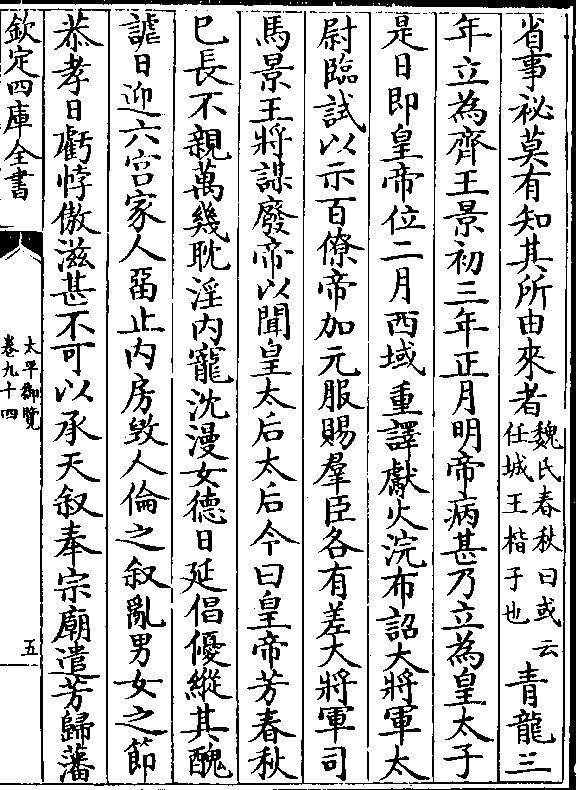 省事祕莫有知其所由來者魏氏春秋曰或云任城王楷子也青龍三
年立為齊王景初三年正月明帝病甚乃立為皇太子
是日即皇帝位二月西域重譯獻火浣布詔大將軍太
尉臨試以示百僚帝加元服賜羣臣各有差大將軍司
馬景王將謀廢帝以聞皇太后太后令曰皇帝芳春秋
已長不親萬幾耽淫内寵沈漫女德日延倡優縱其醜
謔日迎六宫家人畱止内房毀人倫之叙亂男女之節
恭孝日虧悖傲滋甚不可以承天叙奉宗廟遣芳歸藩
欽定四庫全書
太平御覽
卷九十四
五